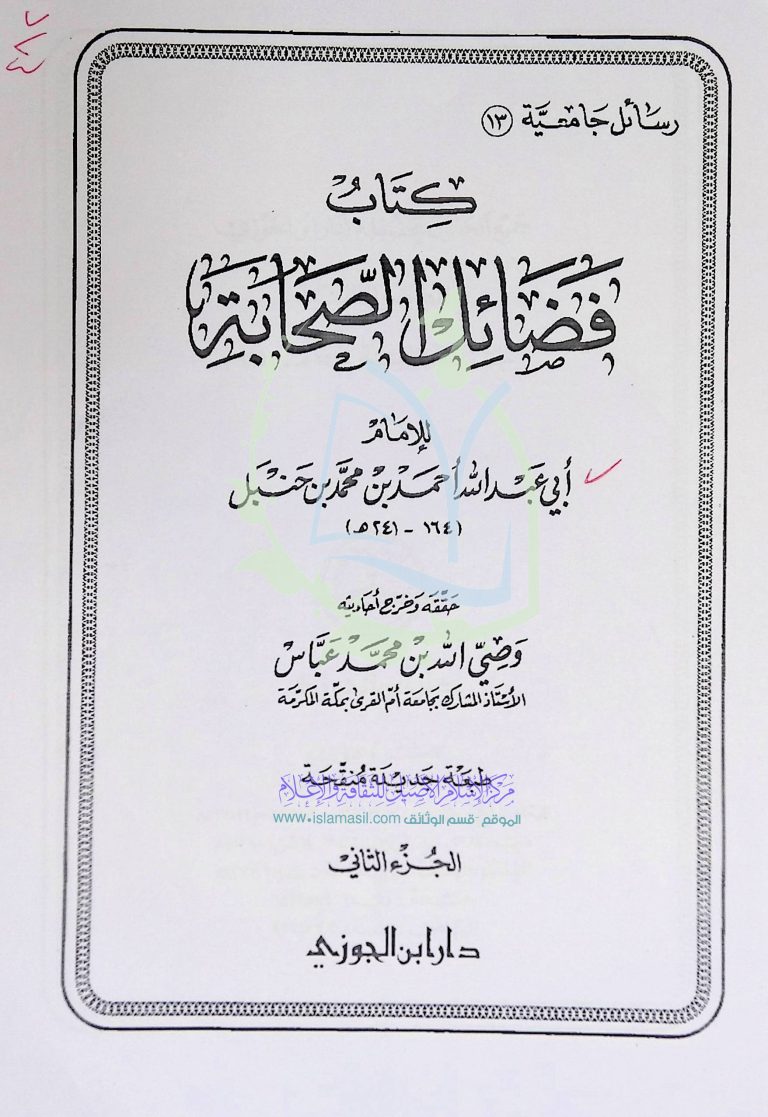 رسائل جامعية (١٣)
كِتَابُ
فَضَائِلِ الصَّحَابَةِ
للإمام
أبي عبد الله أحمد بن محمد بن حنبل
(١٦٤ - ٢٤١ هـ)
حققه وخرج أحاديثه
وصيّ الله بن محمد عبّاس
الأستاذ المشارك بجامعة أم القرى بمكة المكرمة
طبعة جديدة منقحة
مركز الإسلام الأصيل للثقافة والإعلام
الموقع - قسم الوثائق www.islamasil.com
الجزء الثاني
دار ابن الجوزي